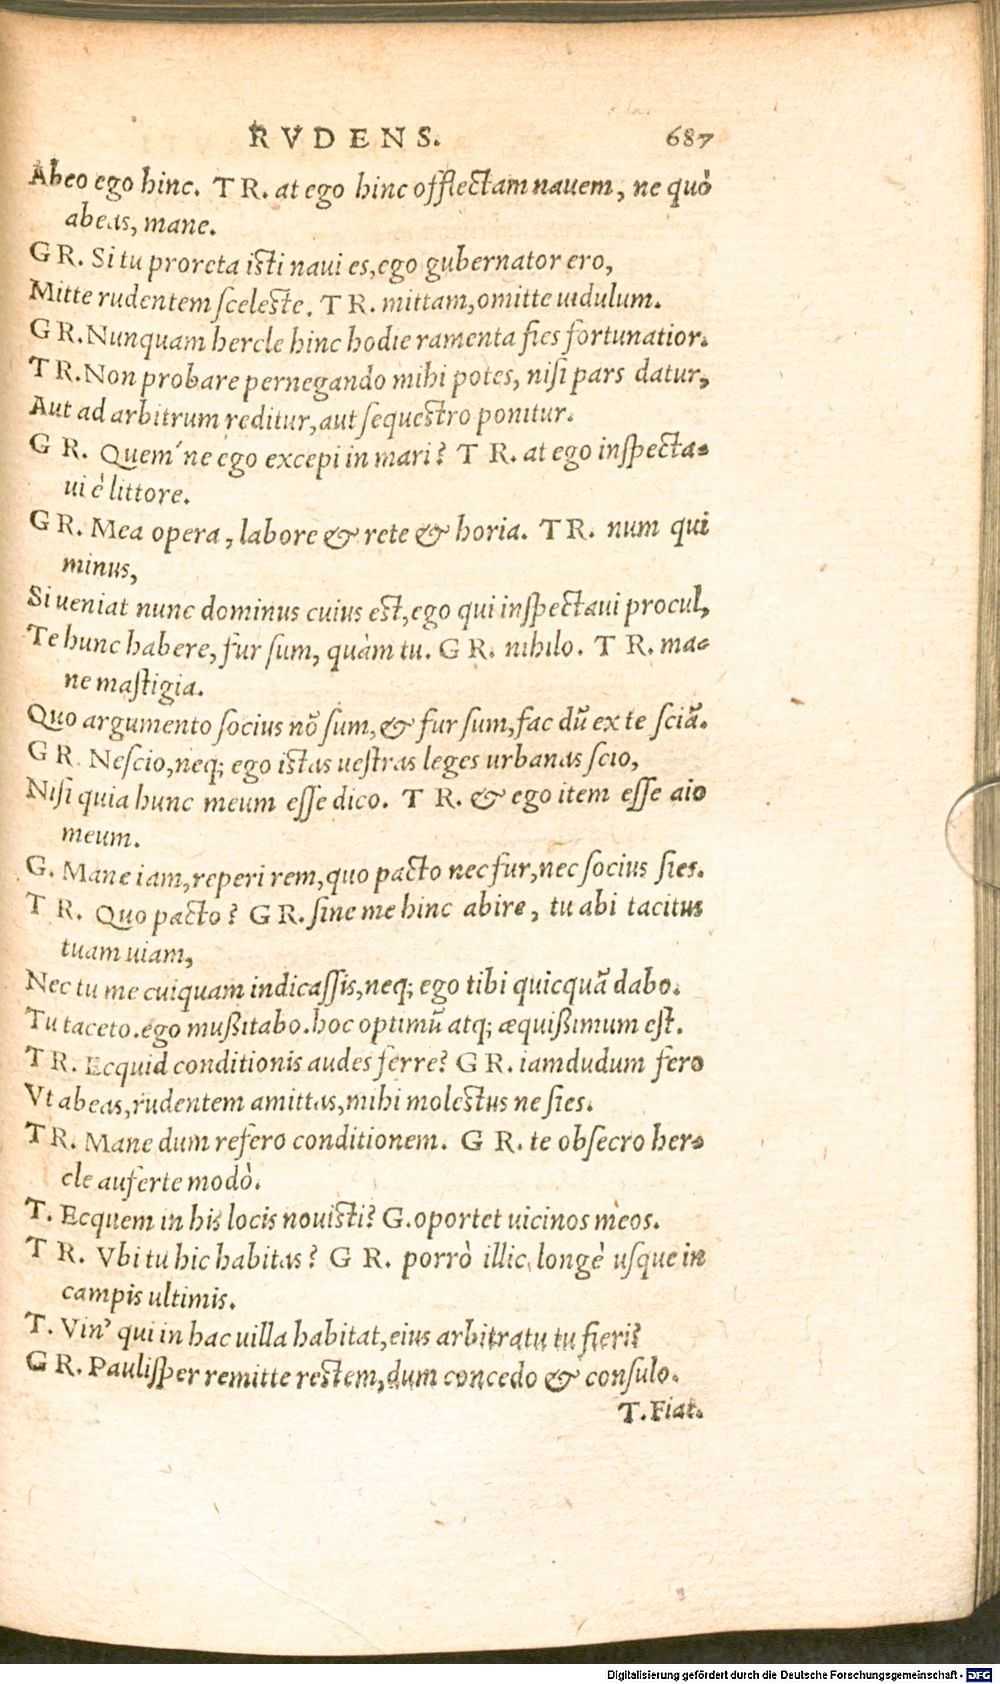 RVDENS. 687
Abeo ego hinc. TR. at ego hinc offlectam nauem, ne quò
abeas, mane.
GR. Si tu proreta isti naui es, ego gubernator ero,
Mitte rudentem sceleste. TR. mittam, omitte uidulum.
GR. Nunquam hercle hinc hodie ramenta fies fortunatior.
TR. Non probare pernegando mihi potes, nisi pars datur,
Aut ad arbitrum reditur, aut sequestro ponitur.
GR. Quem´ne ego excepi in mari? TR. at ego inspecta-
ui è littore.
GR. Mea opera, labore & rete & horia. TR. num qui
minus,
Si ueniat nunc dominus cuius est, ego qui inspectaui procul,
Te hunc habere, fur sum, quàm tu. GR. nihilo. TR. ma-
ne mastigia.
Quo argumento socius nō sum, & fur sum, fac dū ex te sciā.
GR. Nescio, neq; ego istas uestras leges urbanas scio,
Nisi quia hunc meum esse dico. TR. & ego item esse aio
meum.
G. Mane iam, reperi rem, quo pacto nec fur, nec socius sies.
TR. Quo pacto? GR. sine me hinc abire, tu abi tacitus
tuam uiam,
Nec tu me cuiquam indicassis, neq; ego tibi quicquā dabo.
Tu taceto. ego mußitabo. hoc optimū atq; æquißimum est.
TR. Ecquid conditionis audes ferre? GR. iamdudum fero
Vt abeas, rudentem amittas, mihi molestus ne sies.
TR. Mane dum refero conditionem. GR. te obsecro her-
cle auferte modò.
T. Ecquem in his locis nouisti? G. oportet uicinos meos.
TR. Vbi tu hic habitas? GR. porrò illic longè usque in
campis ultimis.
T. Vin' qui in hac uilla habitat, eius arbitratu tu fieri?
GR. Paulisper remitte restem, dum concedo & consulo.
T. Fiat.
Digitalisierung gefördert durch die Deutsche Forschungsgemeinschaft - DFG